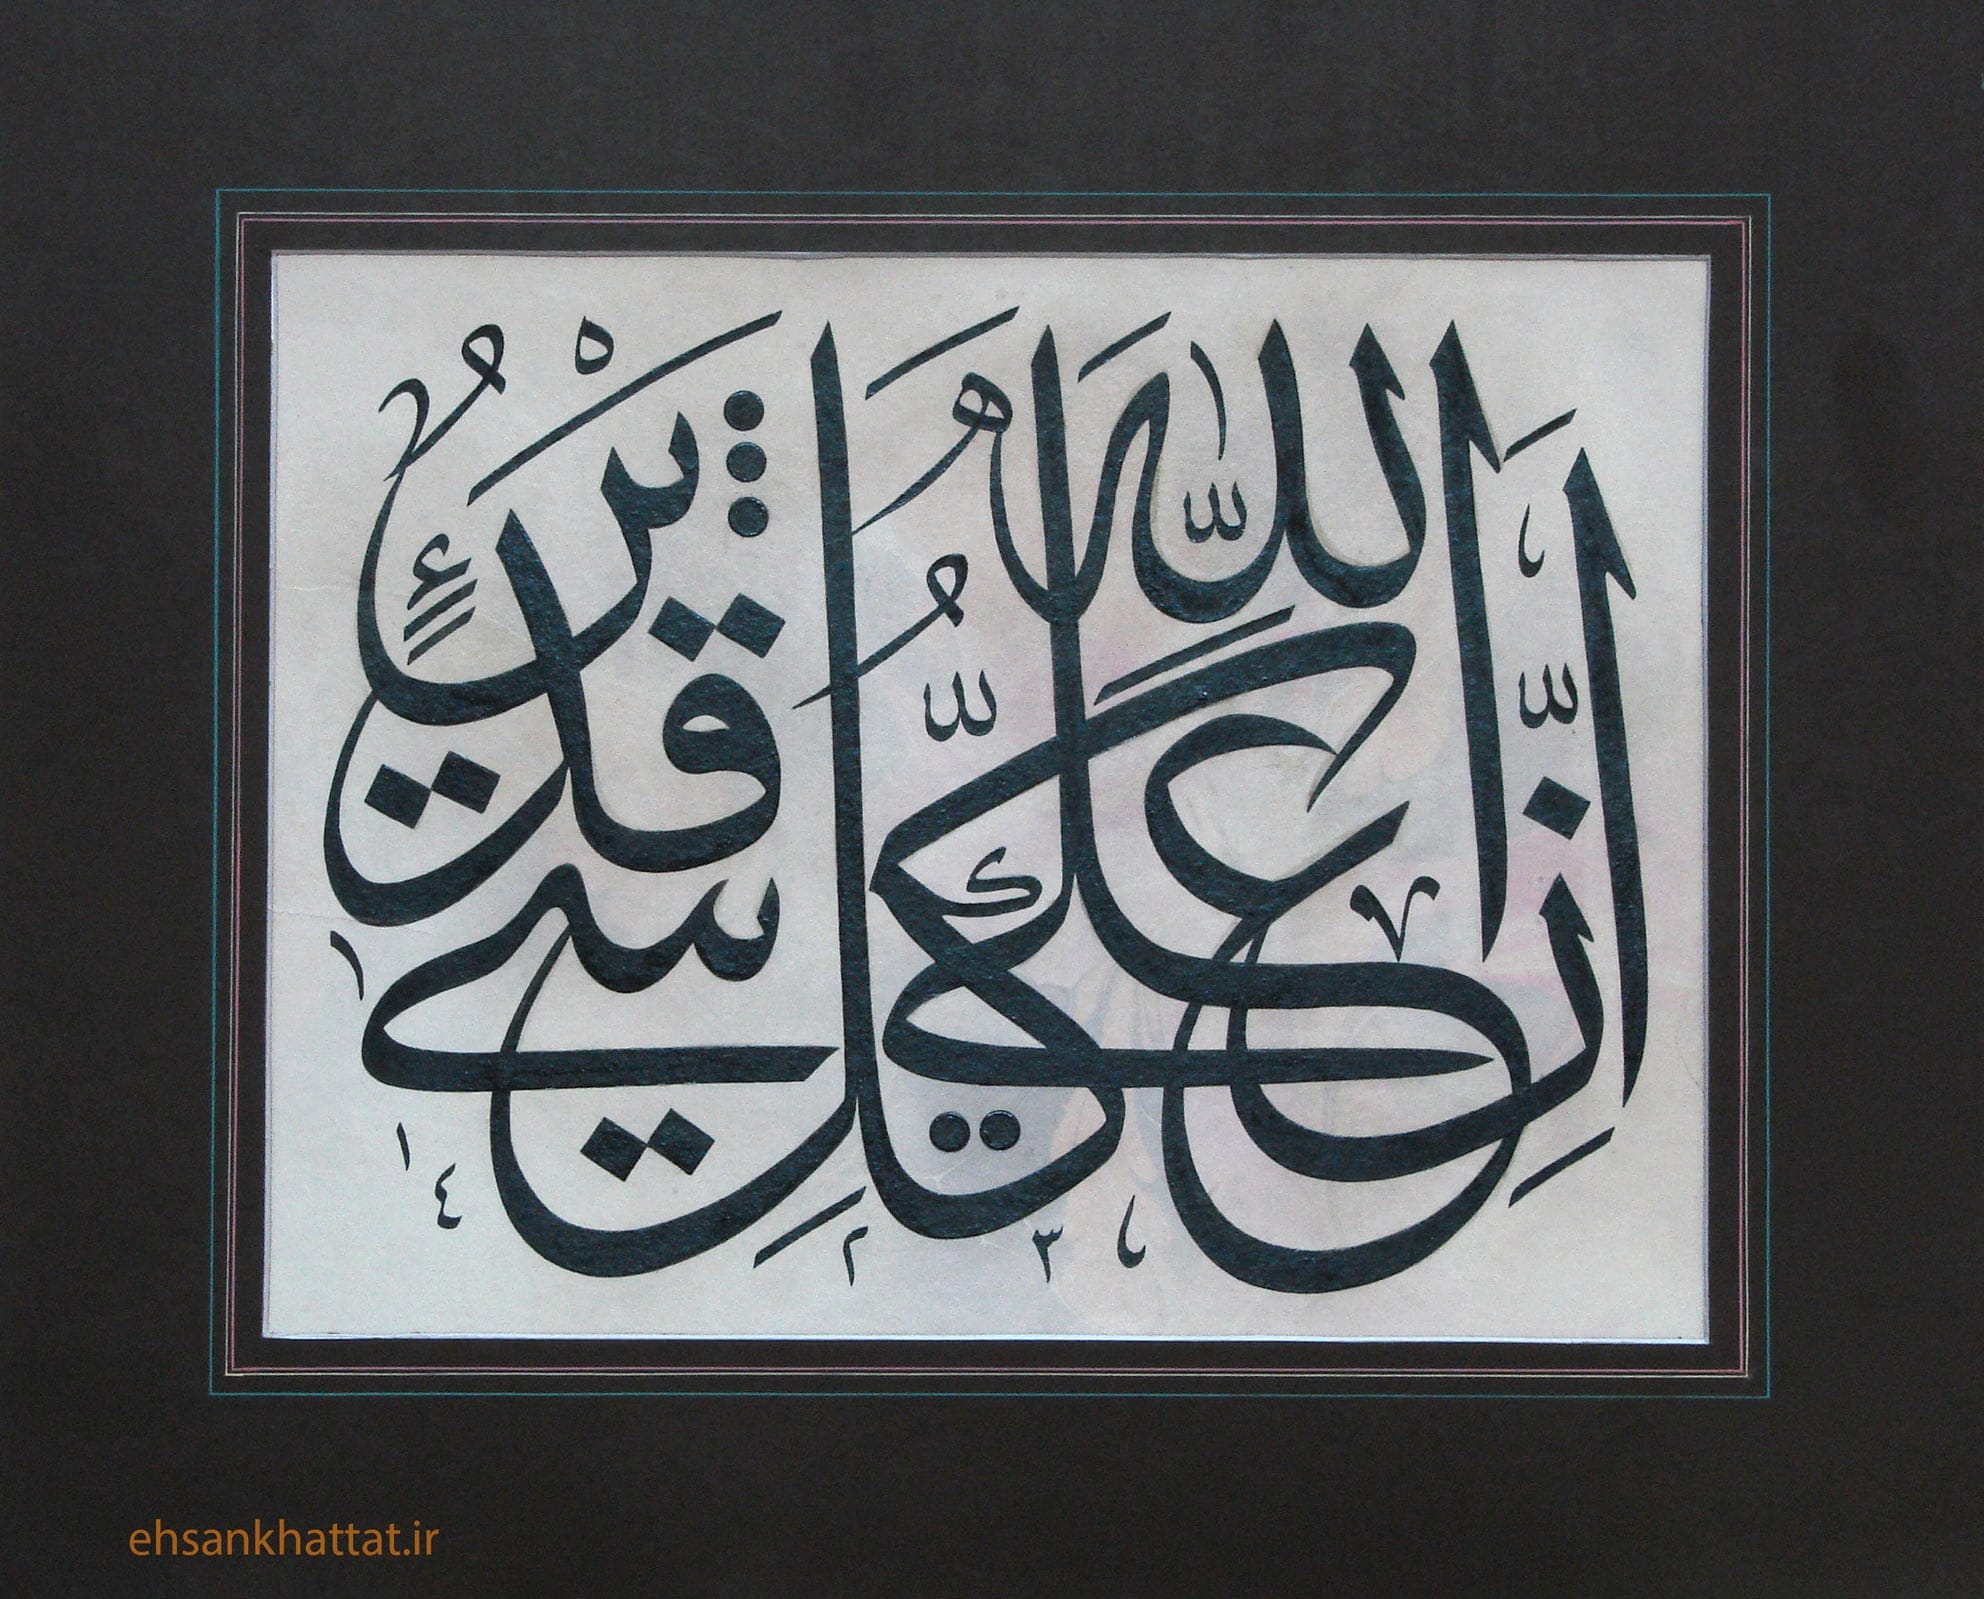 إِنَّ اللَّهَ عَلَىٰ كُلِّ شَيْءٍ قَدِيرٌ
١٤٣٢
ehsankhattat.ir